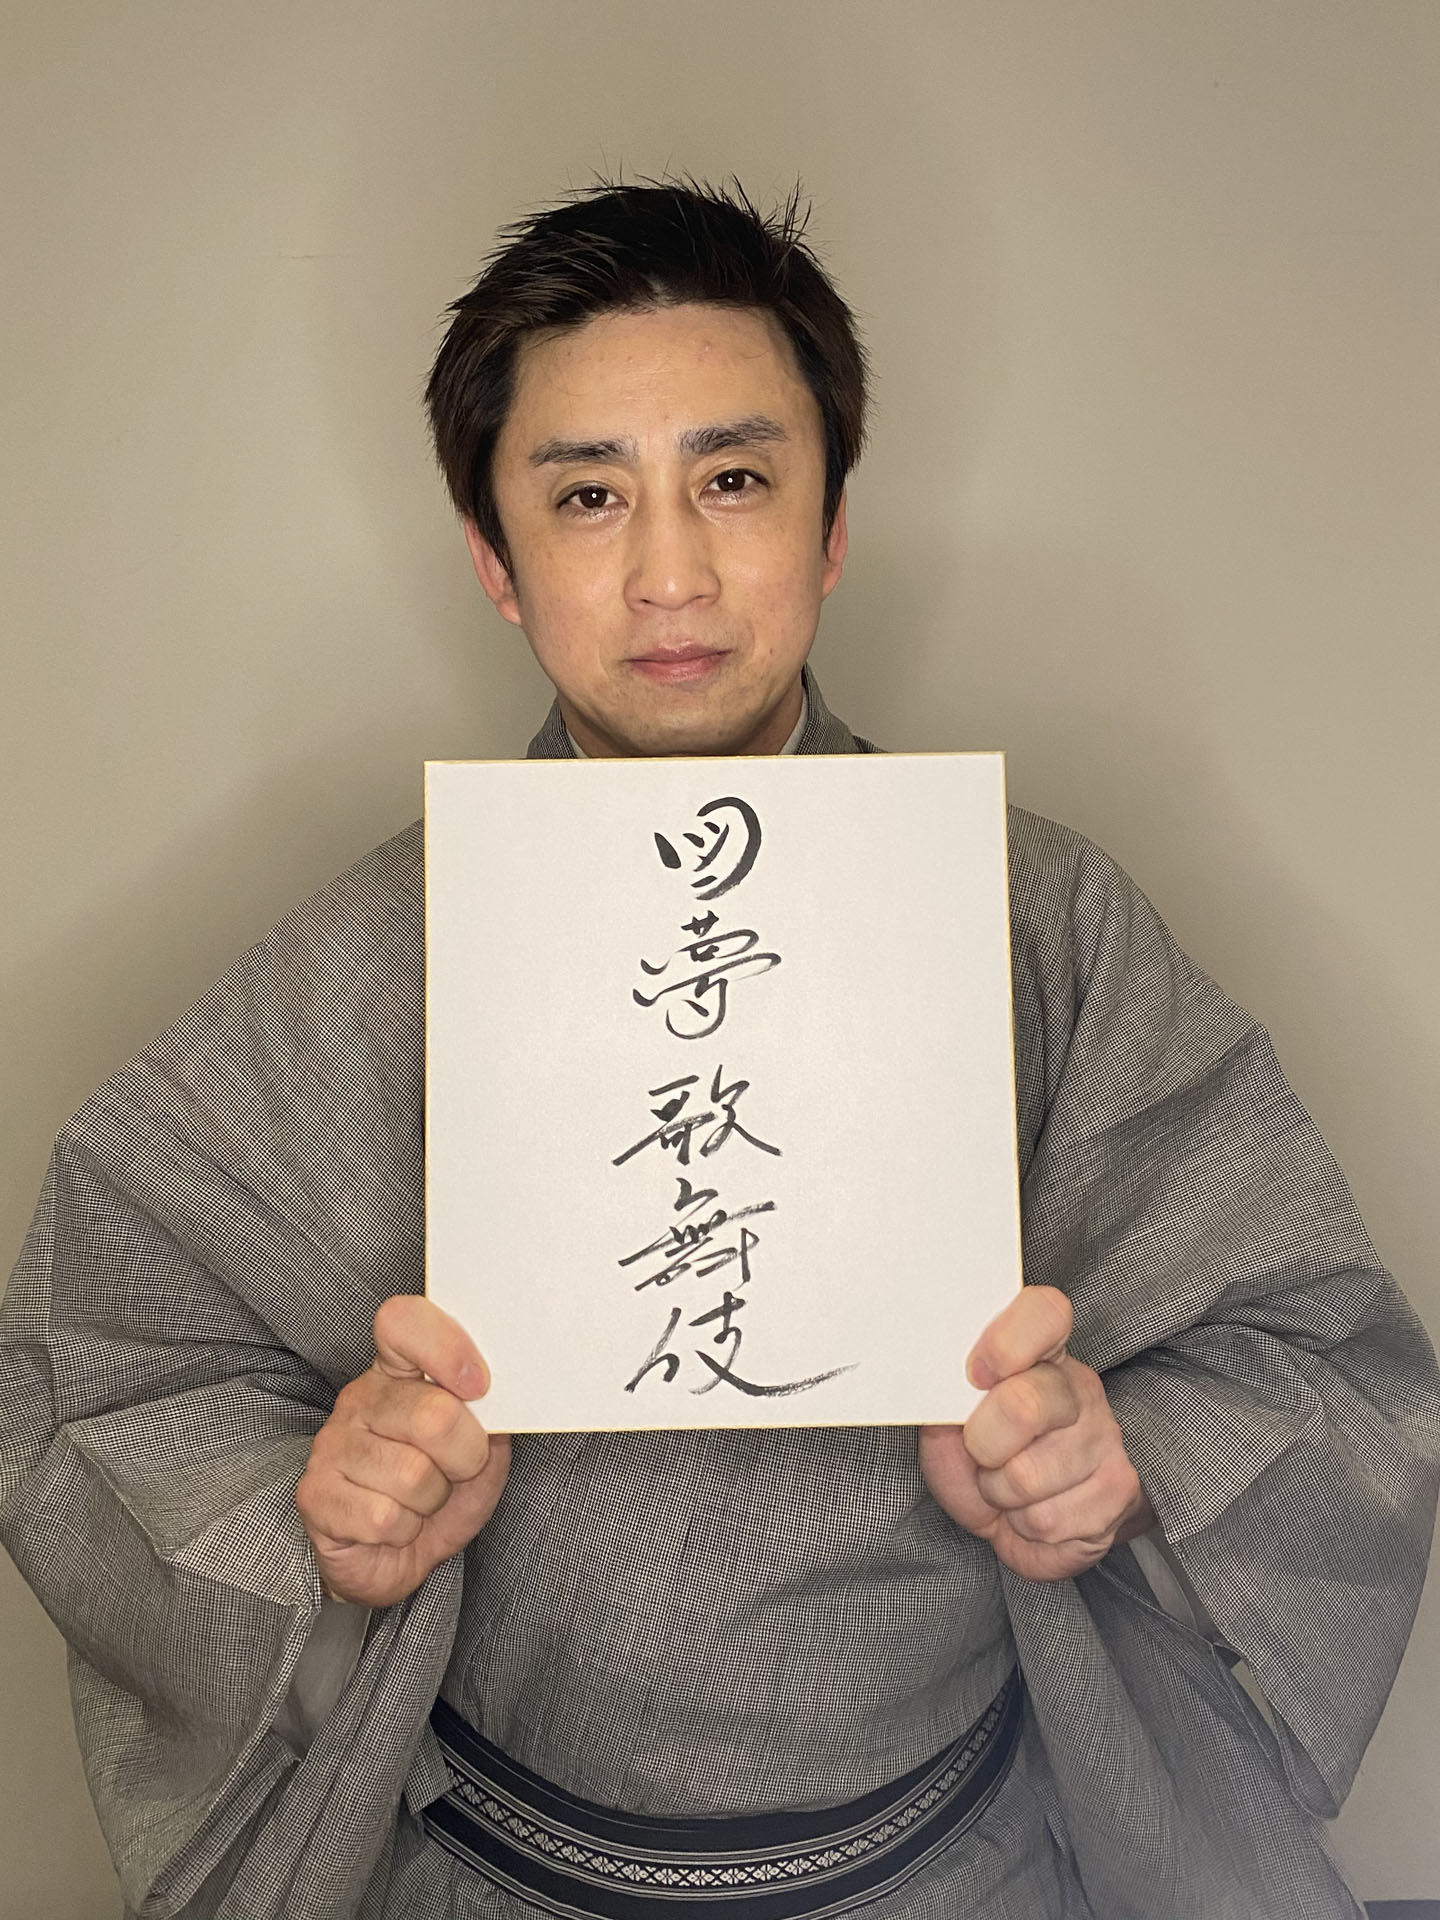 図夢歌舞伎